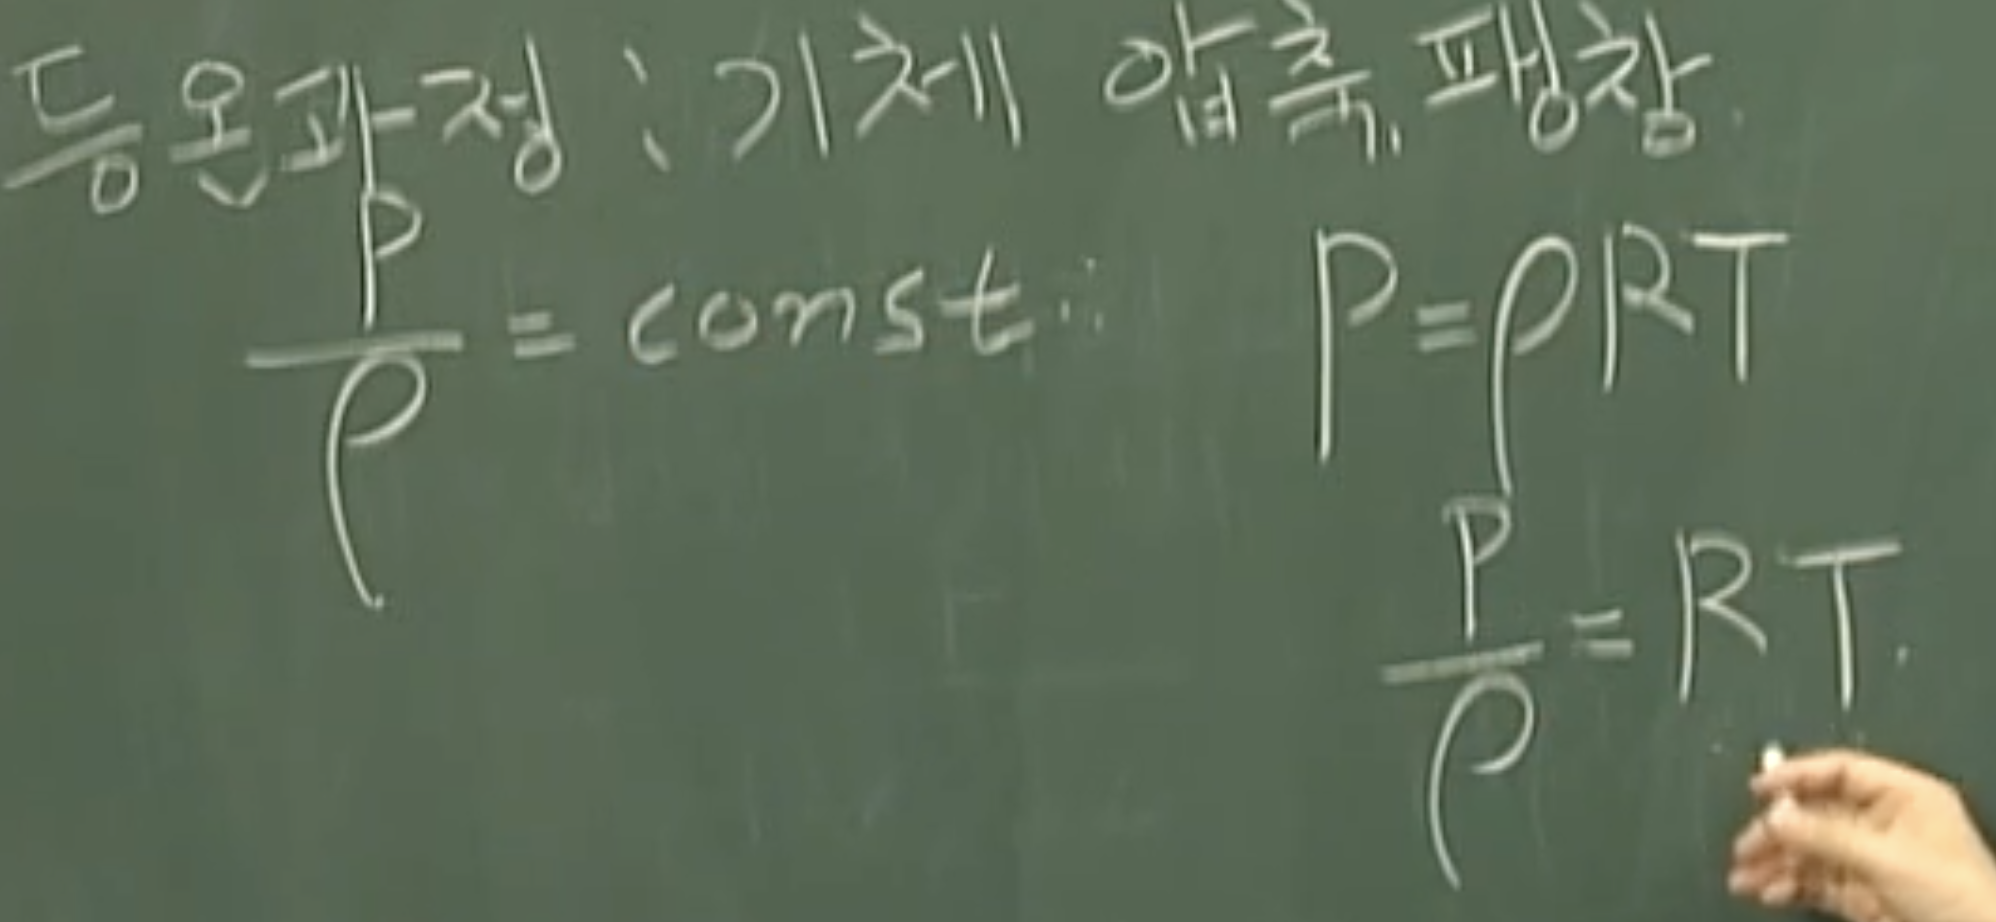 등온과정 : 기체 압축, 팽창.
P/ρ = const. P = ρRT
P/ρ = RT.